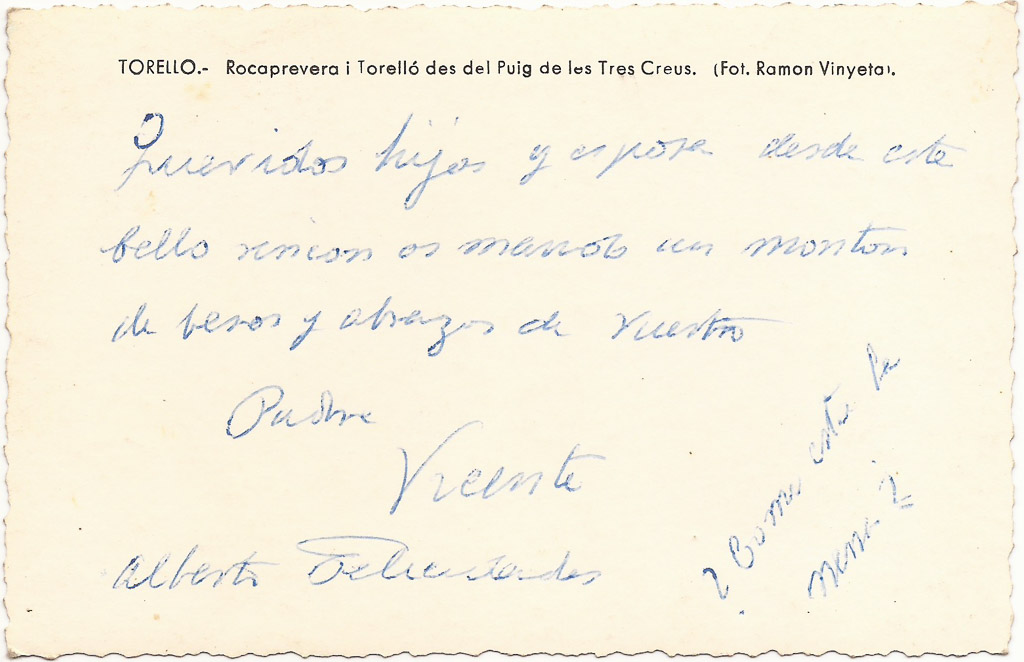 TORELLO.- Rocaprevera i Torelló des del Puig de les Tres Creus. (Fot. Ramon Vinyeta).
Queridos hijos y esposa desde este
bello rincon os mando un monton
de besos y abrazos de vuestro
Padre
Vicente
Alberto Felicidades
¿Como esta la
nena?